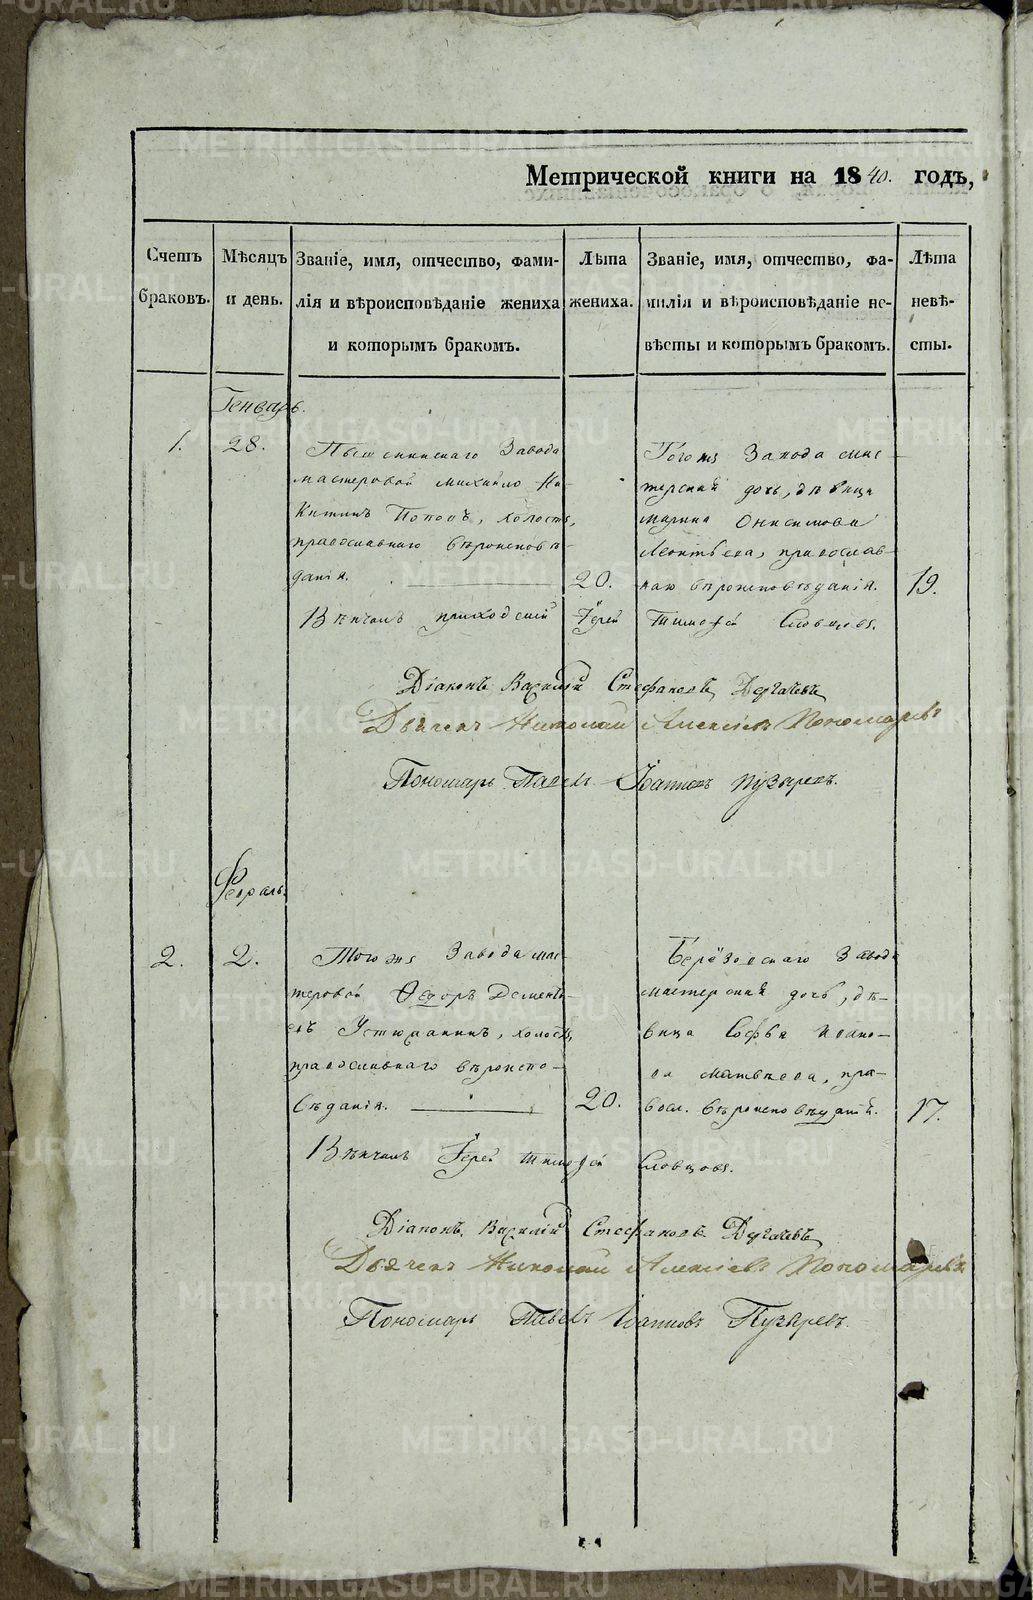 Метрической книги на 1840. годъ,
Счетъ браковъ.
Мѣсяцъ и день.
Званіе, имя, отчество, фами-
лія и вѣроисповѣданіе жениха
и которымъ бракомъ.
Лѣта
жениха.
Званіе, имя, отчество, фа-
милія и вѣроисповѣданіе не-
вѣсты и которымъ бракомъ.
Лѣта
невѣ-
сты.
Генварь.
1.
28.
Пышминскаго Завода
мастеровой Михайло Ни-
китинъ Поповъ, холостъ,
православнаго вѣроисповѣ-
данія.
20.
Тогожъ Завода мас-
терская дочь, дѣвица
Марина Онисимова
Леонтьева, православ-
наго вѣроисповѣданія.
19.
Вѣнчалъ приходскій Іерей Тимофей Словцовъ.
Діаконъ Василій Стефановъ Дергачевъ
Дьячекъ Николай Алексѣевъ Пономаревъ
Пономарь Павелъ Іоанновъ Пузыревъ.
Февраль.
2.
2.
Тогожъ Завода мас-
теровой Ѳедоръ Дементь-
евъ Устюжанинъ, холостъ,
православнаго вѣроиспо-
вѣданія.
20.
Берёзовскаго Завода
мастерская дочь, дѣ-
вица Софья Ивано-
ва Матвѣева, пра-
восл. вѣроисповѣданія.
17.
Вѣнчалъ Іерей Тимофей Словцовъ.
Діаконъ Василій Стефановъ Дергачевъ
Дьячекъ Николай Алексіевъ Пономаревъ
Пономарь Павелъ Іоанновъ Пузыревъ.
METRIKI.GASO-URAL.RU